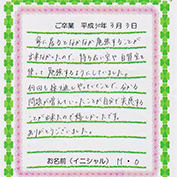 ご卒業 平成30年3月3日
家に居るとなかなか勉強することが
出来なかったので、持ち歩い室や自習室を
使って勉強するようにしていました。
何回も採点しとやっていくことで、分かる
問題が増えていったことが自分で実感する
ことが出来たので嬉しかったです。
ありがとうございました。
お名前(イニシャル) M・O